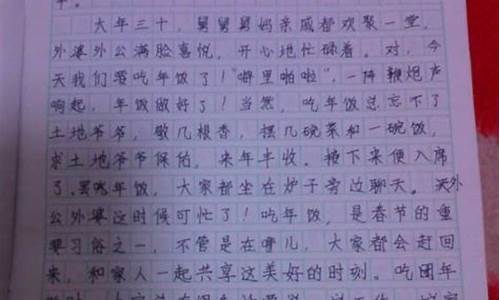 大年三十，舅舅舅妈亲戚都欢聚一堂，
外婆外公满脸喜悦，开心地忙碌着。对，今
天我们要吃年饭了！"噼里啪啦"，一阵鞭炮声
响起，年饭做好了！当然，吃年饭总忘不了
土地爷爷，敬几根香，摆几碗菜和一碗饭，
求土地爷爷保佑，来年丰收。接下来便入席
了，吃年饭，大家都坐在炉子旁边聊天。外
公外婆这时候可忙了！吃年饭，是春节的重
要习俗之一，不管是在哪儿，大家都会赶回
来，和家人一起共享这美好的时刻。吃团年